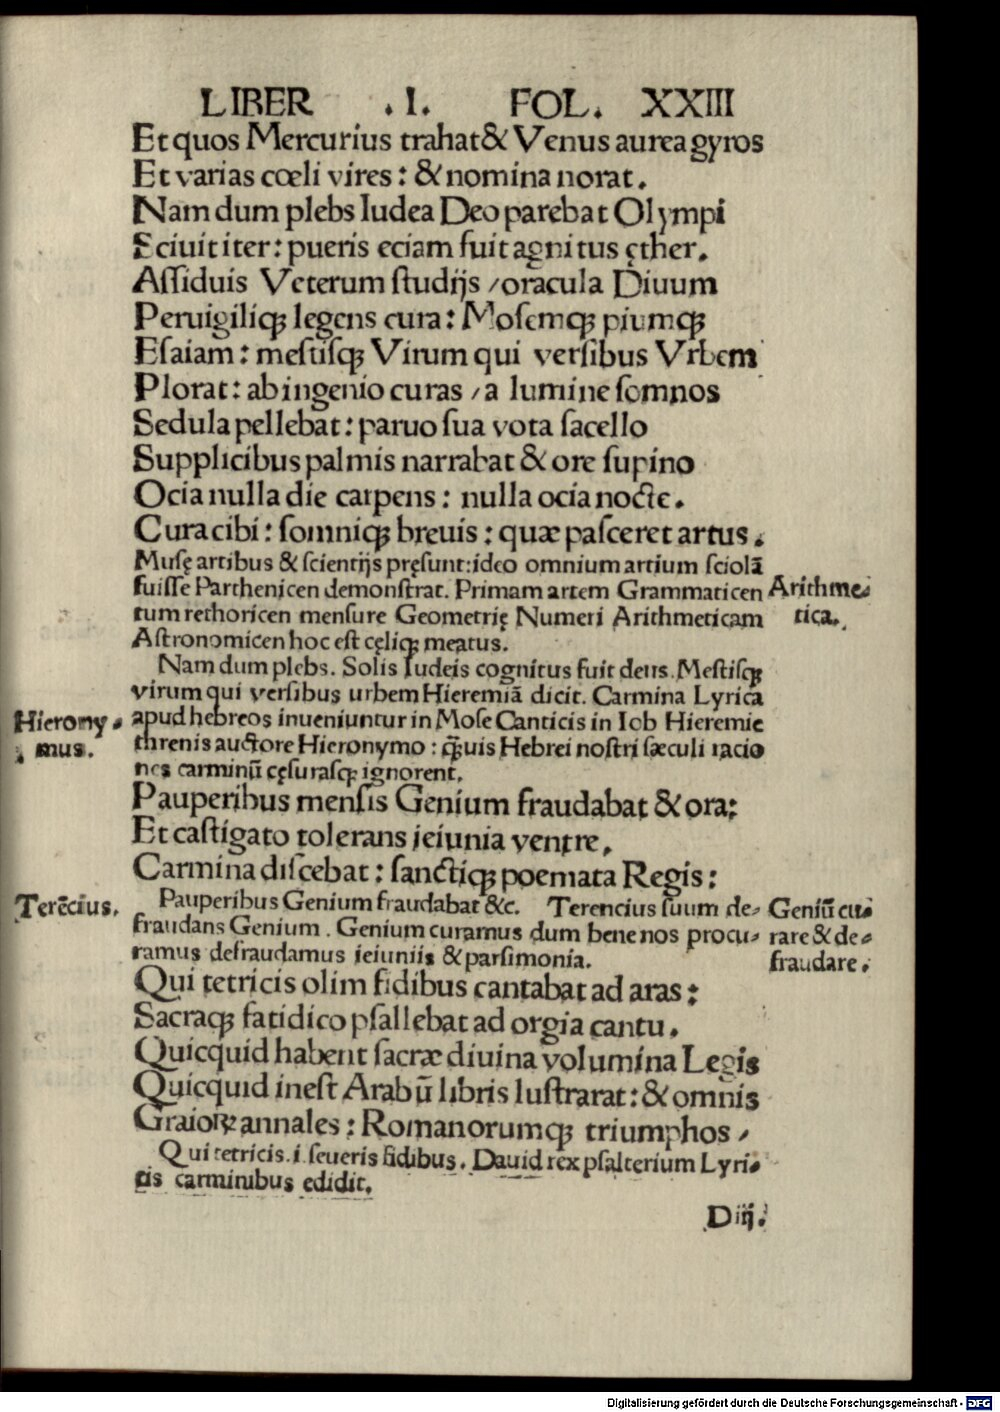 LIBER .I. FOL. XXIII
Et quos Mercurius trahat & Venus aurea gyros
Et varias cœli vires : & nomina norat.
Nam dum plebs Iudea Deo parebat Olympi
Sciuit iter : pueris eciam fuit agnitus ęther.
Aſſiduis Veterum ſtudijs / oracula Diuum
Peruigiliqꝫ legens cura : Moſemqꝫ piumqꝫ
Eſaiam : meſtiſqꝫ Virum qui verſibus Vrbem
Plorat : ab ingenio curas / a lumine ſomnos
Sedula pellebat : paruo ſua vota ſacello
Supplicibus palmis narrabat & ore ſupino
Ocia nulla die carpens : nulla ocia nocte.
Cura cibi : ſomniqꝫ breuis : quæ paſceret artus.
Muſę artibus & ſcientijs pręſunt: ideo omnium artium ſciolā
fuiſſe Parthenicen demonſtrat. Primam artem Grammaticen
Arithme-
tica.
tum rethoricen menſure Geometrię Numeri Arithmeticam
Aſtronomicen hoc eſt cęliqꝫ meatus.
Nam dum plebs. Solis Iudeis cognitus fuit deus. Meſtiſqꝫ
virum qui verſibus urbem Hieremiā dicit. Carmina Lyrica
Hierony-
mus.
apud hebreos inueniuntur in Moſe Canticis in Iob Hieremie
threnis auctore Hieronymo : q̄uis Hebrei noſtri ſæculi racio
nes carminū cęſuraſqꝫ ignorent.
Pauperibus menſis Genium fraudabat & ora:
Et caſtigato tolerans ieiunia ventre,
Carmina diſcebat : ſanctiqꝫ poemata Regis :
Terēcius.
Pauperibus Genium fraudabat &c. Terencius ſuum de-
fraudans Genium . Genium curamus dum bene nos procu-
ramus defraudamus ieiuniis & parſimonia.
Geniū cu-
rare & de-
fraudare.
Qui tetricis olim fidibus cantabat ad aras :
Sacraqꝫ fatidico pſallebat ad orgia cantu.
Quicquid habent ſacræ diuina volumina Legis
Quicquid ineſt Arabū libris luſtrarat : & omnis
Graioꝝ annales : Romanorumqꝫ triumphos /
Qui tetricis .i. ſeueris fidibus. Dauid rex pſalterium Lyri-
cis carminibus edidit.
Diij.
Digitalisierung gefördert durch die Deutsche Forschungsgemeinschaft - DFG